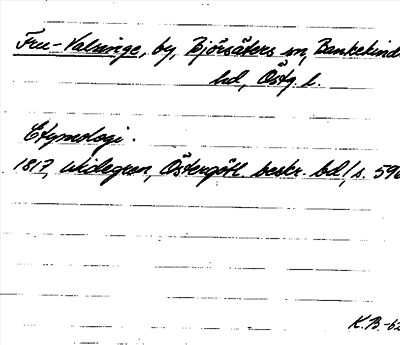 Fru-Valsinge, by, Björsäters sn, Bankekind
hd, Östg. l.
Etymologi.
1817, Widegren, Östergötl. beskr. bd 1, s. 596
K.B.-62